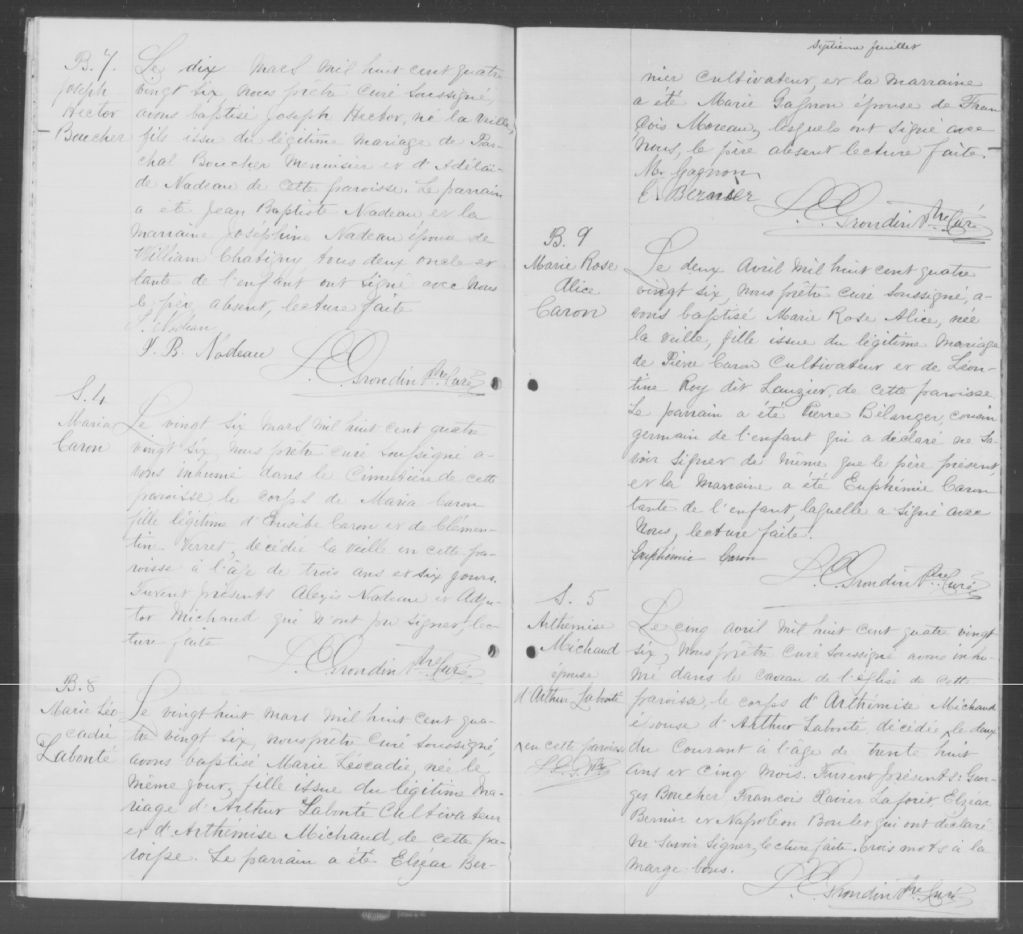 B. 7.
Joseph
Hector
Boucher
Le dix Mars mil huit cent quatre
vingt six nous prêtre Curé soussigné,
avons baptisé Joseph Hector, né la veille,
fils issu du légitime mariage de Pas-
chal Boucher Menuisier et d'Adélaï-
de Nadeau de cette paroisse. Le parrain
a été Jean Baptiste Nadeau et la
marraine Josephine Nadeau épouse de
William Chabigny tous deux oncle et
tante de l'enfant ont signé avec nous
le père absent, lecture faite
J. Nadeau
J. B. Nadeau
Grondin Ptre Curé
S. 4
Maria
Caron
Le vingt six mars mil huit cent quatre
vingt six, nous prêtre curé soussigné a-
vons inhumé dans le Cimetière de cette
paroisse le corps de Maria Caron
fille légitime d'Eusèbe Caron et de Clémen-
tin Verret, décédée la veille en cette pa-
roisse à l'âge de trois ans et six jours.
Furent présents Alexis Nadeau et Adju-
tor Michaud qui n'ont pu signer, lec-
ture faite
Grondin Ptre Curé
B. 8
Marie Léo
cadie
Labonté
Le vingt huit mars mil huit cent qua-
tre vingt six, nous prêtre Curé soussigné,
avons baptisé Marie Léocadie, née le
même jour, fille issue du légitime ma-
riage d'Arthur Labonté Cultivateur
et d'Arthémise Michaud, de cette pa-
roisse. Le parrain a été Elzéar Ber-
septieme feuillet
nier Cultivateur, et la marraine
a été Marie Gagnon épouse de Fran
çois Moreau, lesquels ont signé avec
nous, le père absent lecture faite.
M. Gagnon
E. Bernier
Grondin Ptre Curé
B. 9
Marie Rose
Alice
Caron
Le deux Avril mil huit cent quatre
vingt six, nous prêtre curé soussigné, a-
vons baptisé Marie Rose Alice, née
la veille, fille issue du légitime mariage
de Pierre Caron Cultivateur et de Léon-
tine Roy dit Lauzier, de cette paroisse
Le parrain a été Pierre Bélanger, cousin
germain de l'enfant qui a déclaré ne sa-
voir signer de même que le père présent,
et la Marraine a été Euphémie Caron
tante de l'enfant, laquelle a signé avec
nous, lecture faite.
Euphémie Caron
Grondin Ptre Curé
S. 5
Arthémise
Michaud
épouse
d'Arthur Labonté
x en cette paroisse
Le cinq avril mil huit cent quatre vingt
six, nous prêtre Curé soussigné avons inhu-
mé dans le caveau de l'église de cette
paroisse, le corps d'Arthémise Michaud
épouse d'Arthur Labonté décédée x le deux
du Courant à l'âge de trente huit
ans et cinq mois. Furent présents Geor-
ges Boucher François Xavier Laforêt, Elzéar
Bernier et Napoléon Boulet qui ont déclaré
ne savoir signer, lecture faite. trois mots à la
marge bons.
Grondin Ptre Curé